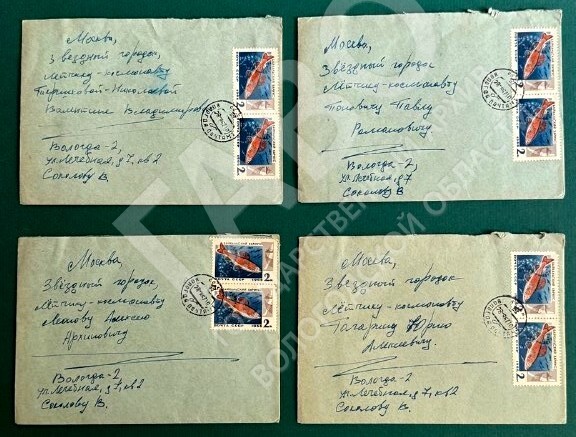 Москва,
Звёздный городок
Лётчику-космонавту
Терешковой-Николаевой
Валентине Владимировне
Вологда-2,
ул. Лечебная, д. 7, кв 2
Соколову В.
Москва,
Звёздный городок
Лётчику-космонавту
Поповичу Павлу
Романовичу
Вологда-2,
ул. Лечебная, д. 7
Соколову В
Москва,
Звёздный городок,
Лётчику-космонавту
Леонову Алексею
Архиповичу
Вологда-2
ул. Лечебная, д. 7, кв 2
Соколову В.
ПОЧТА СССР 1966
2к
Москва,
Звёздный городок
Лётчику-космонавту
Гагарину Юрию
Алексеевичу.
Вологда-2
ул. Лечебная, д. 7, кв 2
Соколову В.